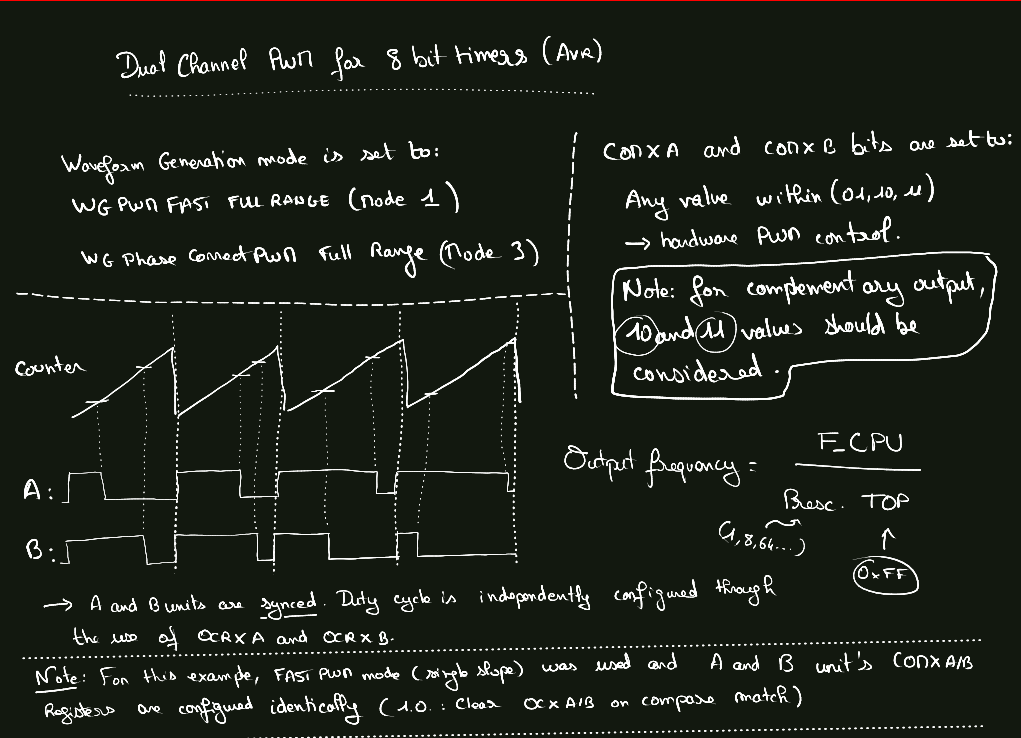 Dual Channel PWM for 8 bit timers (AVR)
Waveform Generation mode is set to:
WG PWM FAST FULL RANGE (Mode 1)
WG Phase Correct PWM Full Range (Mode 3)
COMXA and COMXB bits are set to:
Any value within (01, 10, 11)
→ hardware PWM control.
Note: for complementary output,
10 and 11 values should be
considered.
Counter
A:
B:
Output frequency = F_CPU
Presc. TOP
(1, 8, 64...)
0xFF
→ A and B units are synced. Duty cycle is independently configured through
the use of OCRXA and OCRXB.
Note: For this example, FAST PWM mode (single slope) was used and A and B unit's COMXA/B
Registers are configured identically (1.0.: Clear OCXA/B on compare match)